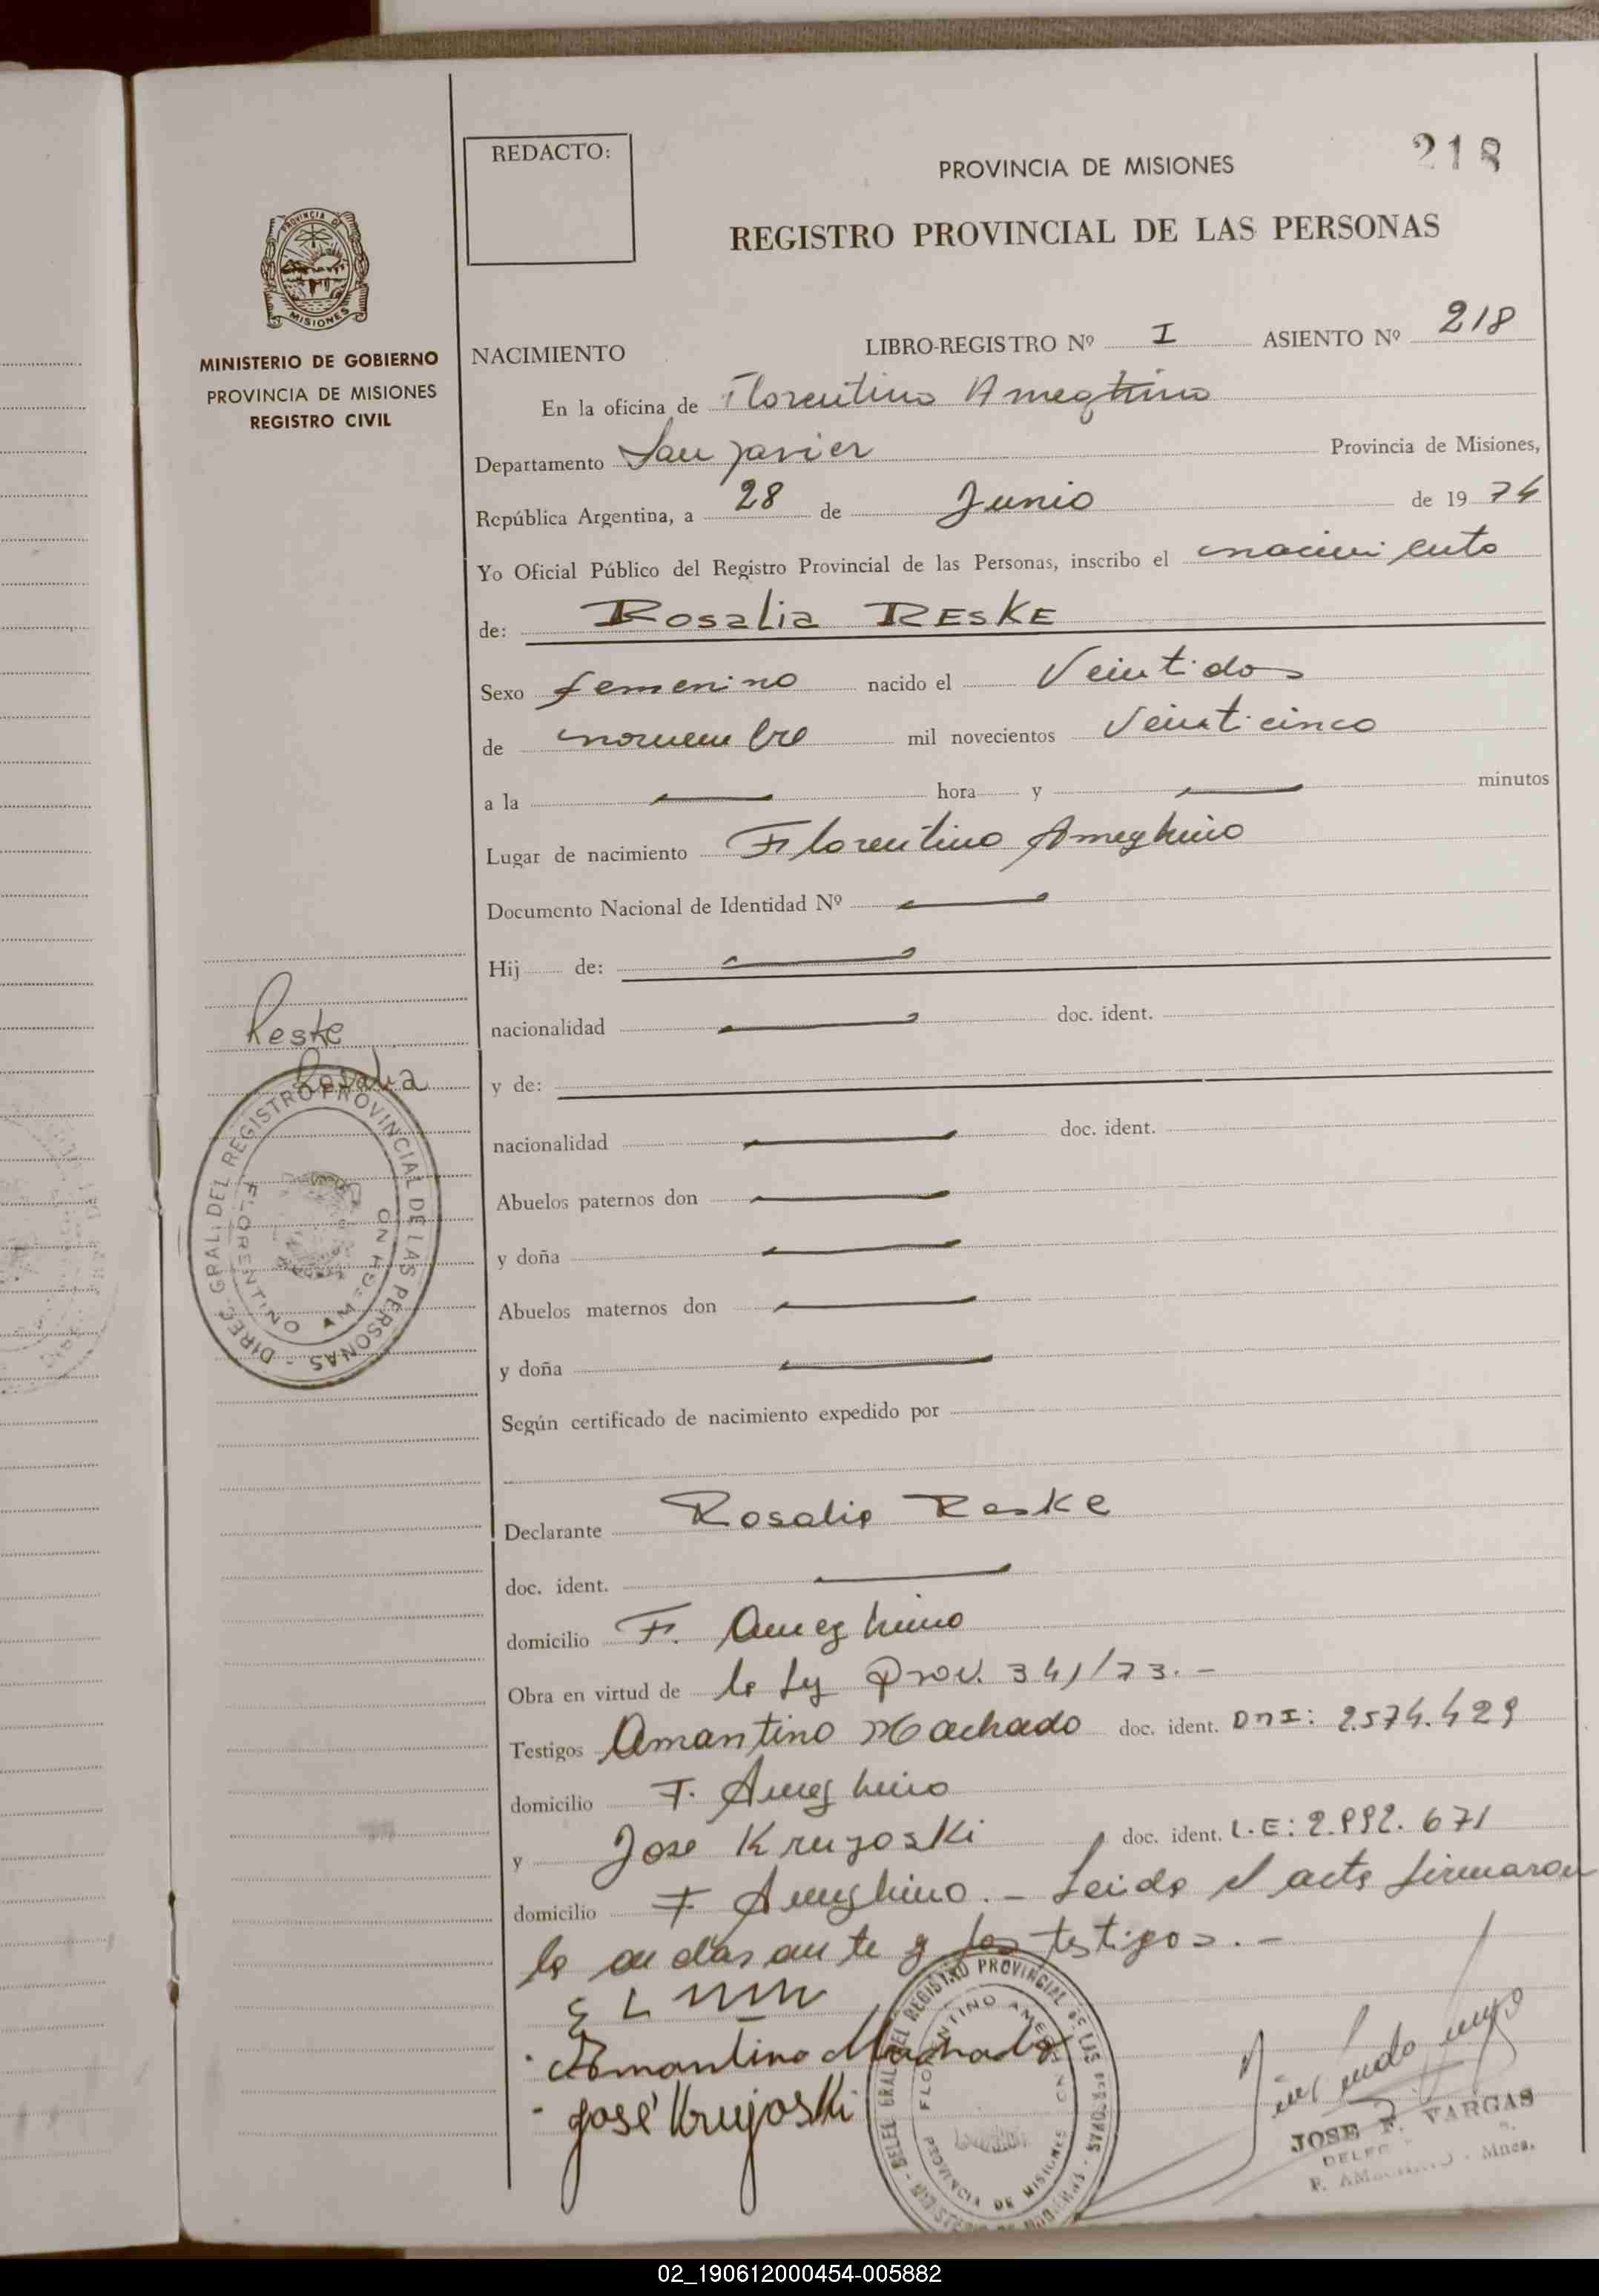 218
REDACTO:
PROVINCIA DE MISIONES
REGISTRO PROVINCIAL DE LAS PERSONAS
PROVINCIA DE
MISIONES
MINISTERIO DE GOBIERNO
PROVINCIA DE MISIONES
REGISTRO CIVIL
NACIMIENTO LIBRO-REGISTRO Nº I ASIENTO Nº 218
En la oficina de Florentino Ameghino
Departamento San Javier Provincia de Misiones,
República Argentina, a 28 de Junio de 19 74
Yo Oficial Público del Registro Provincial de las Personas, inscribo el nacimiento
de: Rosalia RESKE
Sexo femenino nacido el Veintidos
de noviembre mil novecientos Veinticinco
a la — hora y — minutos
Lugar de nacimiento Florentino Ameghino
Documento Nacional de Identidad Nº —
Hij de: —
nacionalidad — doc. ident.
y de:
nacionalidad — doc. ident.
Abuelos paternos don —
y doña —
Abuelos maternos don —
y doña —
Según certificado de nacimiento expedido por
Declarante Rosalia Reske
doc. ident. —
domicilio F. Ameghino
Obra en virtud de la Ley Prov. 341/73. -
Testigos Amantino Machado doc. ident. DNI: 2.574.429
domicilio F. Ameghino
y Jose Krujoski doc. ident. L.E: 2.992.671
domicilio F Ameghino. - Leida el acta firmaron
la y los testigos. -
Amantino Machado
José Krujoski
Reske
Rosalia
DIREC. GRAL. DEL REGISTRO PROVINCIAL DE LAS PERSONAS -
FLORENTINO AMEGHINO
GRAL. DEL REGISTRO PROVINCIAL DE LAS PERSONAS -
FLORENTINO AMEGHINO
PROVINCIA DE MISIONES
JOSE F. VARGAS
F. AMEGHINO - Mnes.
02_190612000454-005882